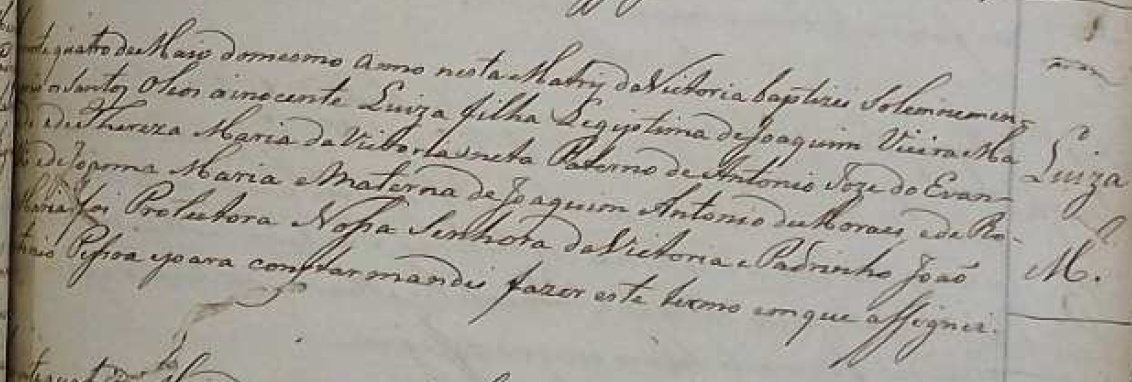 quatro de Maio do mesmo anno nesta Matry da Victoria baptizei Solemnemen-
Santos Oleos a inocente Luiza filha Legitima de Joaquim Vieira Ma
Luiza
e de Thereza Maria da Victoria neta Paterno de Antonio Joze do Evan-
de Maria e Materna de Joaquim Antonio de Moraes e de Ro-
foi Protectora Nossa Senhora da Victoria e Padrinho João
M.
Pessoa e para constar mandei fazer este termo em que assignei.